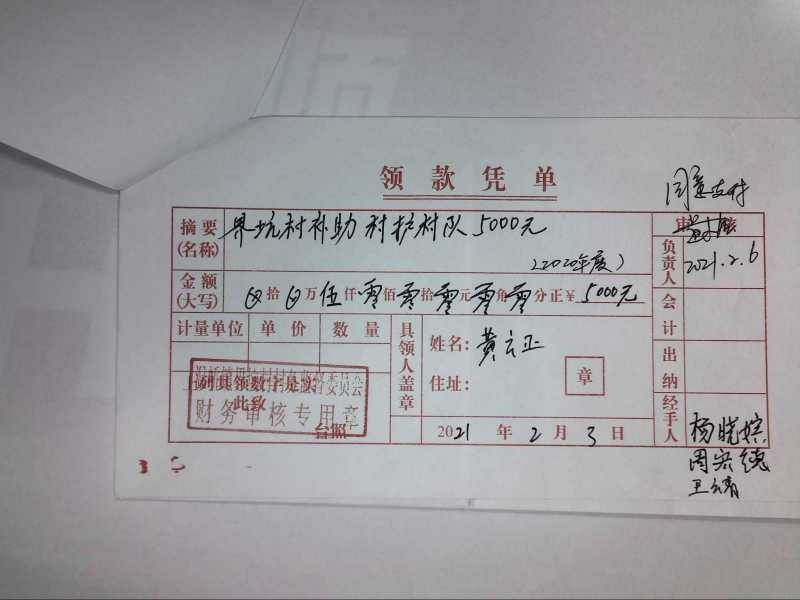 领款凭单
同意支付
摘要(名称) 界坑村补助村护村队5000元
(2020年度)
审核
负责人 2021.2.6
金额(大写) 拾 万伍仟零佰零拾零元零角零分正¥5000元
会计
计量单位 单价 数量
具领人盖章
姓名:黄云正
住址:
章
出纳
上列具领数字是实
此致
财务审核专用章
台照
2021年2月3日
经手人 杨晓婷
周宏德